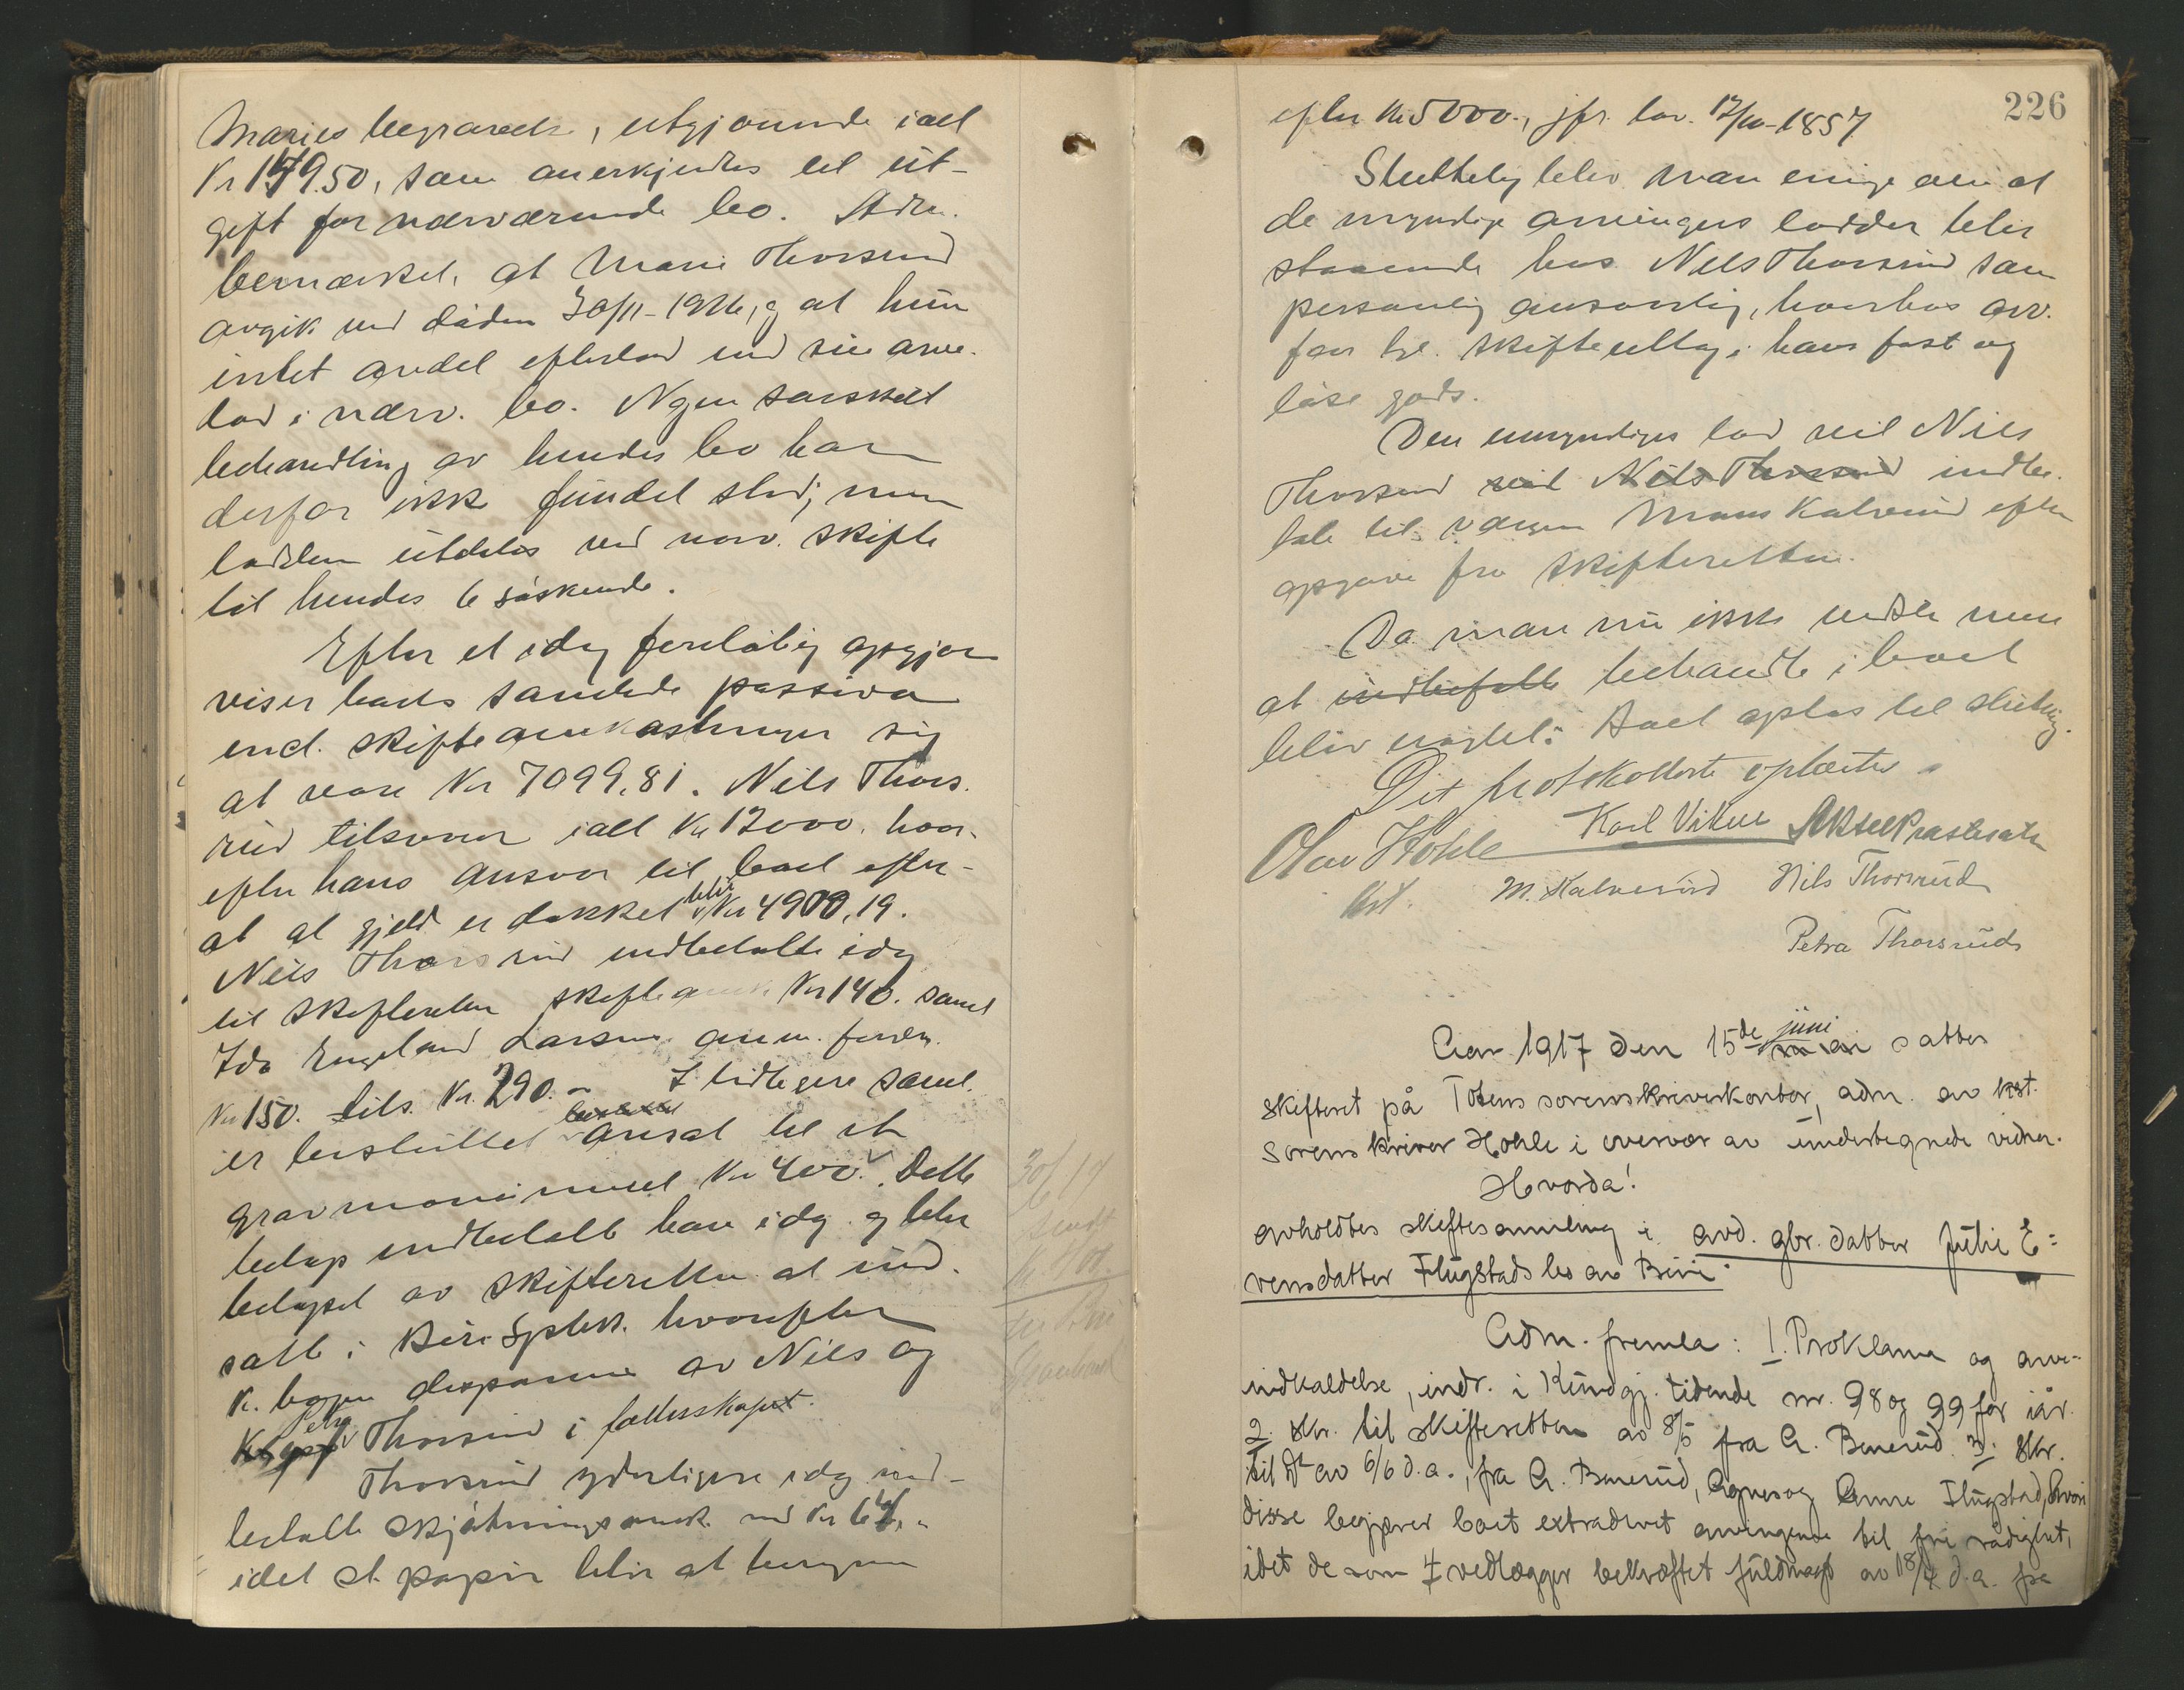 Maries begravelse, utgjørende ialt
Kr 149.50, som anerkjendtes til ut-
gift for nærværende bo. Adm.
bemærket, at Marie Thorsrud
avgik ved døden 30/11-1916, og at hun
intet andet efterlod end sin arve-
lod i nærv. bo. Nogen særskilt
behandling av hendes bo har
derfor ikke fundet sted; men
lodden utdeles ved nærv. skifte
til hendes 6 søskende.
Efter et idag foreløbig opgjør
viser boets samlede passiva
incl. skifteomkostninger sig
at være Kr 7099,81. Nils Thors-
rud tilsvarer ialt Kr 12000. hvor-
efter hans ansvar til boet efter-
at al gjeld er dækket blir Kr 4900,19.
Nils Thorsrud indbetalte idag
til skifteretten skifteomk. Kr 140. samt
Ida Engeland Larsens anm. fordr.
Kr 150. tils. Kr. 290.- I tidligere saml.
er besluttet avsat til et
gravmonument Kr 400. Dette
beløp indbetalt han idag og blir
beløpet av skifteretten at ind-
satte i Biri Spbk. hvorefter
k. bogen disponeres av Nils og
Petra Thorsrud i fællesskapet.
Thorsrud yderligere idag ind-
betalte skjøtningsomk. med Kr 64,-
idet st. papir blir at beregne
30/6 17
sendt
kr 400.
til Biri
Sparebank
226
efter Kr 5000.-, jfr. lov. 12/10-1857
Sluttelig blev man enige om at
de myndige arvingers lodder blir
staaende hos Nils Thorsrud som
personlig ansvarlig, hvorhos arv.
faar tgl. skifteutlæg i hans fast og
løse gods.
Den umyndiges lod vil Nils
Thorsrud vil Nils Thorsrud indbe-
tale til værgen Mons Kalverud efter
opgave fra skifteretten.
Da man nu ikke vidste mere
at indbefatte behandle i boet
blev vedtat: Boet optas til slutning.
Det protokollerte oplæstes.
Olav Hohle Karl Viken Aksel Prasterud
kst. M. Kalverud Nils Thorsrud
Petra Thorsrud
Aar 1917 den 15de juni mai sattes
skifteret på Totens sorenskriverkontor, adm. av kst.
sorenskriver Hohle i overvær av undertegnede vidner.
Hvorda!
avholdtes skiftesamling i avd. gbr. datter Julie E=
vensdatter Flugstads bo av Biri.
Adm. fremla: 1. Proklama og arve-
indkaldelse, indr. i Kundgj. tidende nr. 98 og 99 for iår.
2. Skr. til skifteretten av 8/5 fra A. Benerud. 3. Skr.
til dt av 6/6 d.a., fra A. Benerud, Agnes og Anne Flugstad, hvori
disse begjærer boet extraderet arvingerne til fri rådighet,
idet de som 4 vedlægger bekræftet fuldmagt av 18/4 d.a. fra